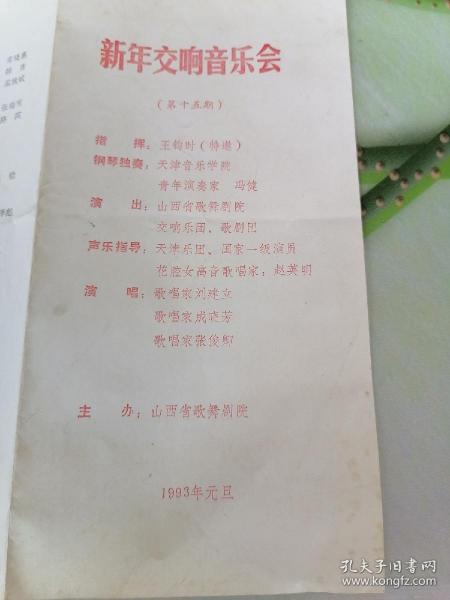 新年交响音乐会
（第十五期）
指 挥：王钧时（特邀）
钢琴独奏：天津音乐学院
青年演奏家 冯健
演 出：山西省歌舞剧院
交响乐团、歌剧团
声乐指导：天津乐团、国家一级演员
花腔女高音歌唱家：赵英明
演 唱：歌唱家刘建立
歌唱家成晓芳
歌唱家张俊卿
主 办：山西省歌舞剧院
1993年元旦
孔夫子旧书网
www.kongfz.com